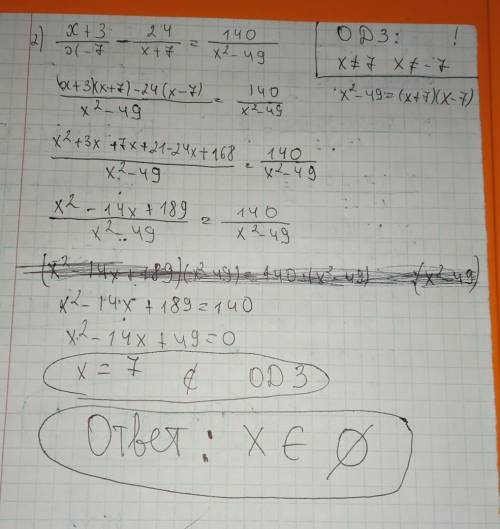 2) (x+3)/(x-7) - 24/(x+7) = 140/(x²-49)
ОДЗ: !
x≠7 x≠-7
x²-49=(x+7)(x-7)
((x+3)(x+7)-24(x-7))/(x²-49) = 140/(x²-49)
(x²+3x+7x+21-24x+168)/(x²-49) = 140/(x²-49)
(x²-14x+189)/(x²-49) = 140/(x²-49)
x²-14x+189=140
x²-14x+49=0
x=7 ∉ ОДЗ
Ответ: x∈∅